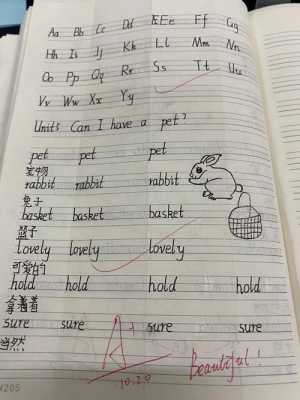 Aa Bb Cc Dd Ee Ff Gg
Hh Ii Jj Kk Ll Mm Nn
Oo Pp Qq Rr Ss Tt Uu
Vv Ww Xx Yy
Unit5 Can I have a pet?
pet pet pet
宠物
rabbit rabbit rabbit
兔子
basket basket basket
篮子
lovely lovely lovely
可爱的
hold hold hold hold
拿着
sure sure sure sure
当然
A+
10.20 Beautiful!